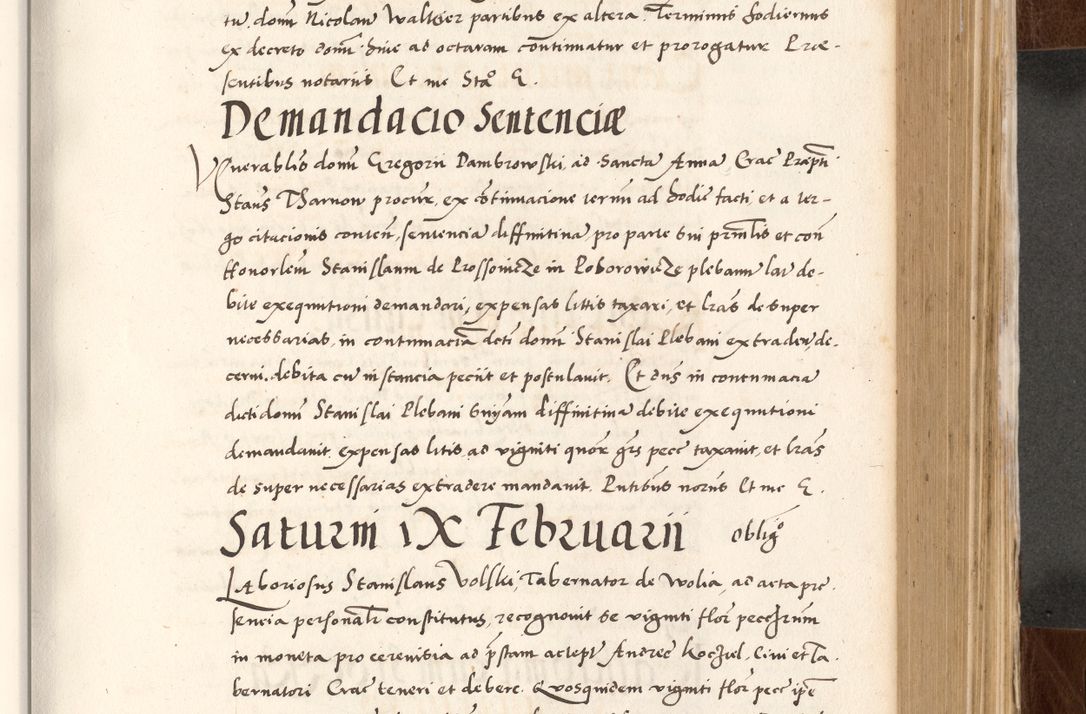 tu. domi Nicolaum Waltÿer partibus ex altera. Terminus hodiernus
ex decreto domi. huic ad octavam continuatur et prorogatur Præ-
sentibus notariis Et me Staõ E.
Demandacio Sentenciæ
Venerablis domi Gregorii Dambrowski, ad Sancta Anna Crac̃ Præpti
Staũs Tharnow procur̃, ex cõtumacione termi ad hodie facti, et a ter-
go citacionis conteñ, sentencia diffinitiua, pro parte sui prñlis et coñ
Honorlem Stanislaum de Prossouicze in Poborowicze plebanum lat de-
bite exequutioni demandari, expensas littis taxari, et lr̃as desuper
necessarias, in contumaciam dcti domi Stanislai Plebani extradeñ, de-
cerni. debita cũ instancia peciit et postulauit. Et dñs in contumacia
dicti domi Stanislai Plebani Sniam diffinitiuã debite exequutioni
demandauit. expensas litis, ad viginti quõr gr̃s pecc̃ taxauit, et lr̃as
de super necessarias extradere mandauit. Pntibus norys Et me E.
Saturni IX Februarii obligõ
Laboriosus Stanislaus Volski, Tabernator de Wolia, ad acta pre-
sencia personalr constitutus, recognouit se viginti flor̃ peccz̃rum
in moneta pro cerenisia ad p̃stam acleptã Andreæ Koczĩel, Ciui et Ta-
bernatori Crac̃ teneri et debere. Quosquidem viginti flor̃ pecc̃ ipẽ